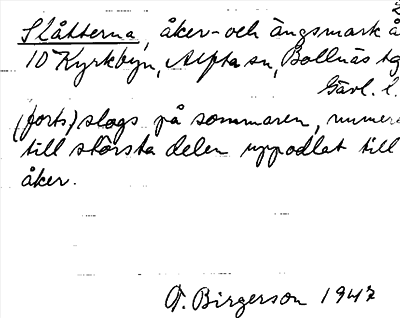 Slåtterna, åker- och ängsmark å
10 Kyrkbyn, Alfta sn, Bollnäs tg
Gävl. l.
(forts) slogs på sommaren, numera
till största delen uppodlat till
åker.
A. Birgerson 1947